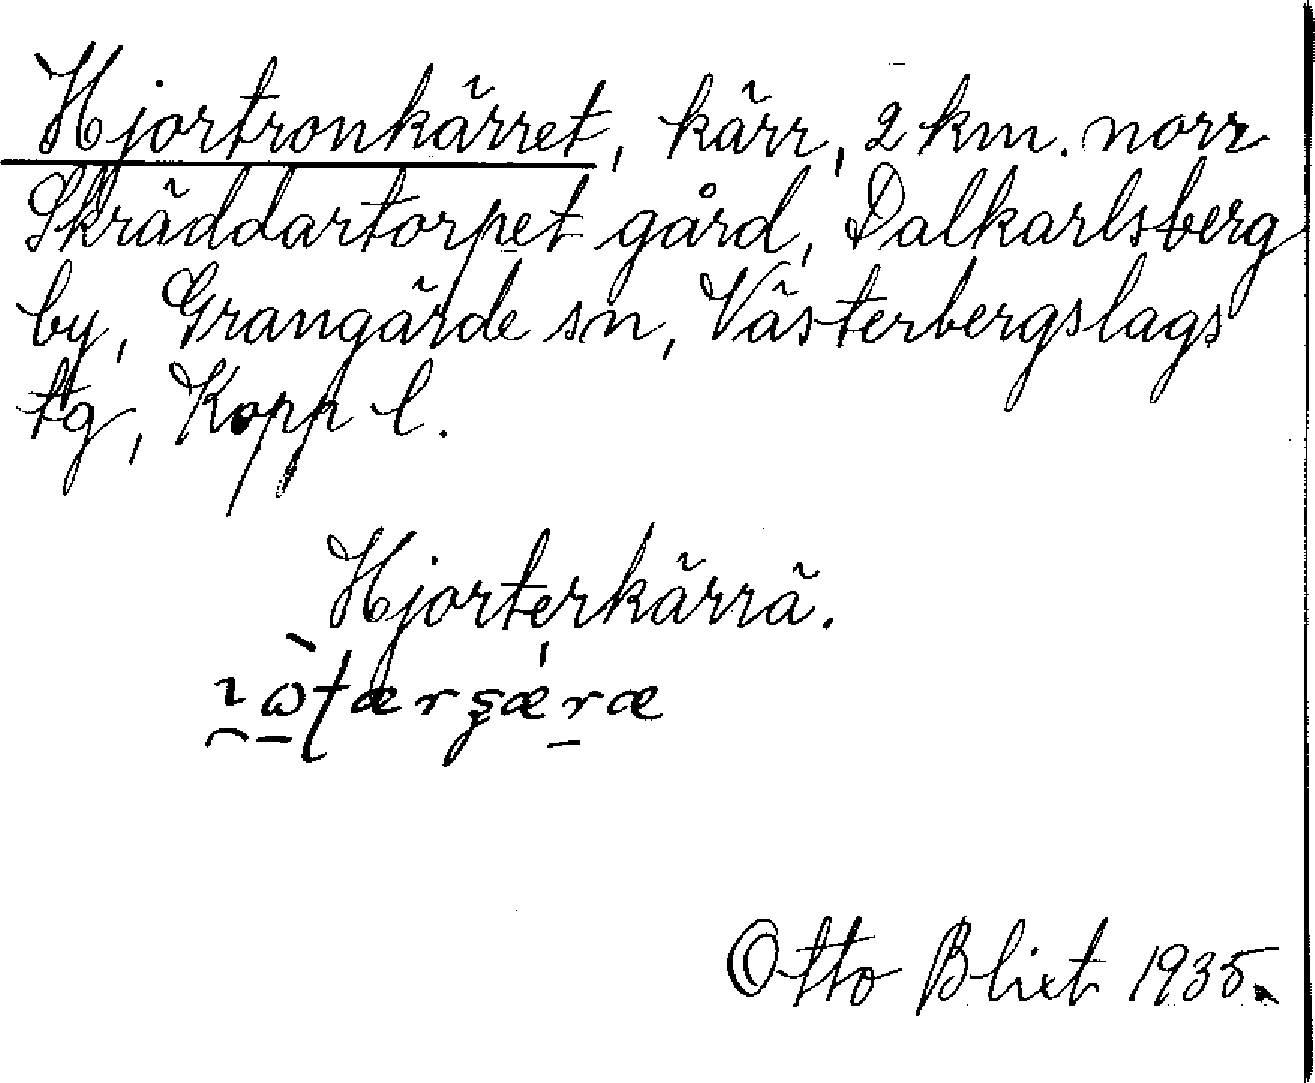 Hjortronkärret, kärr, 2 km. norr
Skräddartorpet gård, Dalkarlsberg
by, Grangärde sn, Västerbergslags
tg, Kopp l.
Hjorterkärrä.
Otto Blixt 1935.